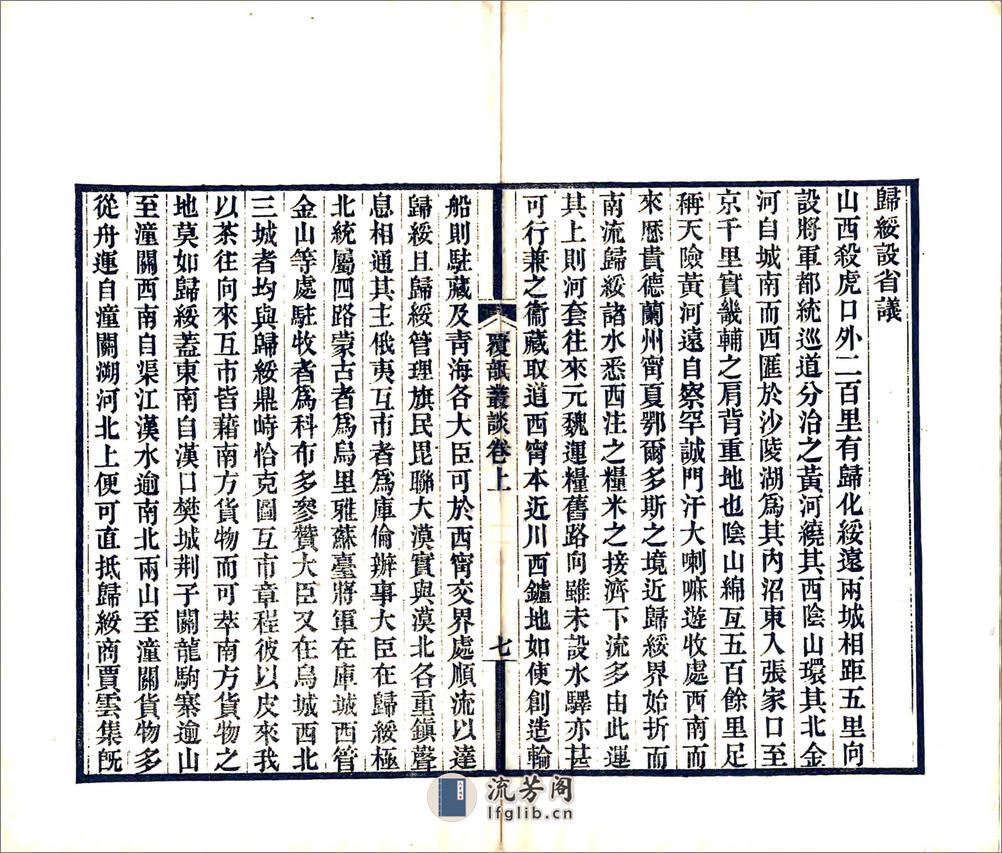 歸綏設省議
山西殺虎口外二百里有歸化綏遠兩城相距五里向
設將軍都統巡道分治之黃河繞其西陰山環其北金
河自城南而西匯於沙陵湖爲其內沼東入張家口至
京千里實畿輔之肩背重地也陰山綿亙五百餘里足
稱天險黃河遠自察罕誠門汗大喇嘛遊收處西南而
來歷貴德蘭州甯夏鄂爾多斯之境近歸綏界始折而
南流歸綏諸水悉西注之糧米之接濟下流多由此運
其上則河套往來元魏運糧舊路向雖未設水驛亦甚
可行兼之衞藏取道西甯本近川西鑪地如使創造輪
覆瓿叢談卷上
七
船則駐藏及青海各大臣可於西甯交界處順流以達
歸綏且歸綏管理旗民毘聯大漠實與漠北各重鎮聲
息相通其主俄夷互市者爲庫倫辦事大臣在歸綏極
北統屬四路蒙古者爲烏里雅蘇臺將軍在庫城西管
金山等處駐牧者爲科布多參贊大臣又在烏城西北
三城者均與歸綏鼎峙恰克圖互市章程彼以皮來我
以茶往向來互市皆藉南方貨物而可萃南方貨物之
地莫如歸綏蓋東南自漢口樊城荆子關龍駒寨逾山
至潼關西南自渠江漢水逾南北兩山至潼關貨物多
從舟運自潼關溯河北上便可直抵歸綏商賈雲集旣
流芳阁
lfglib.cn